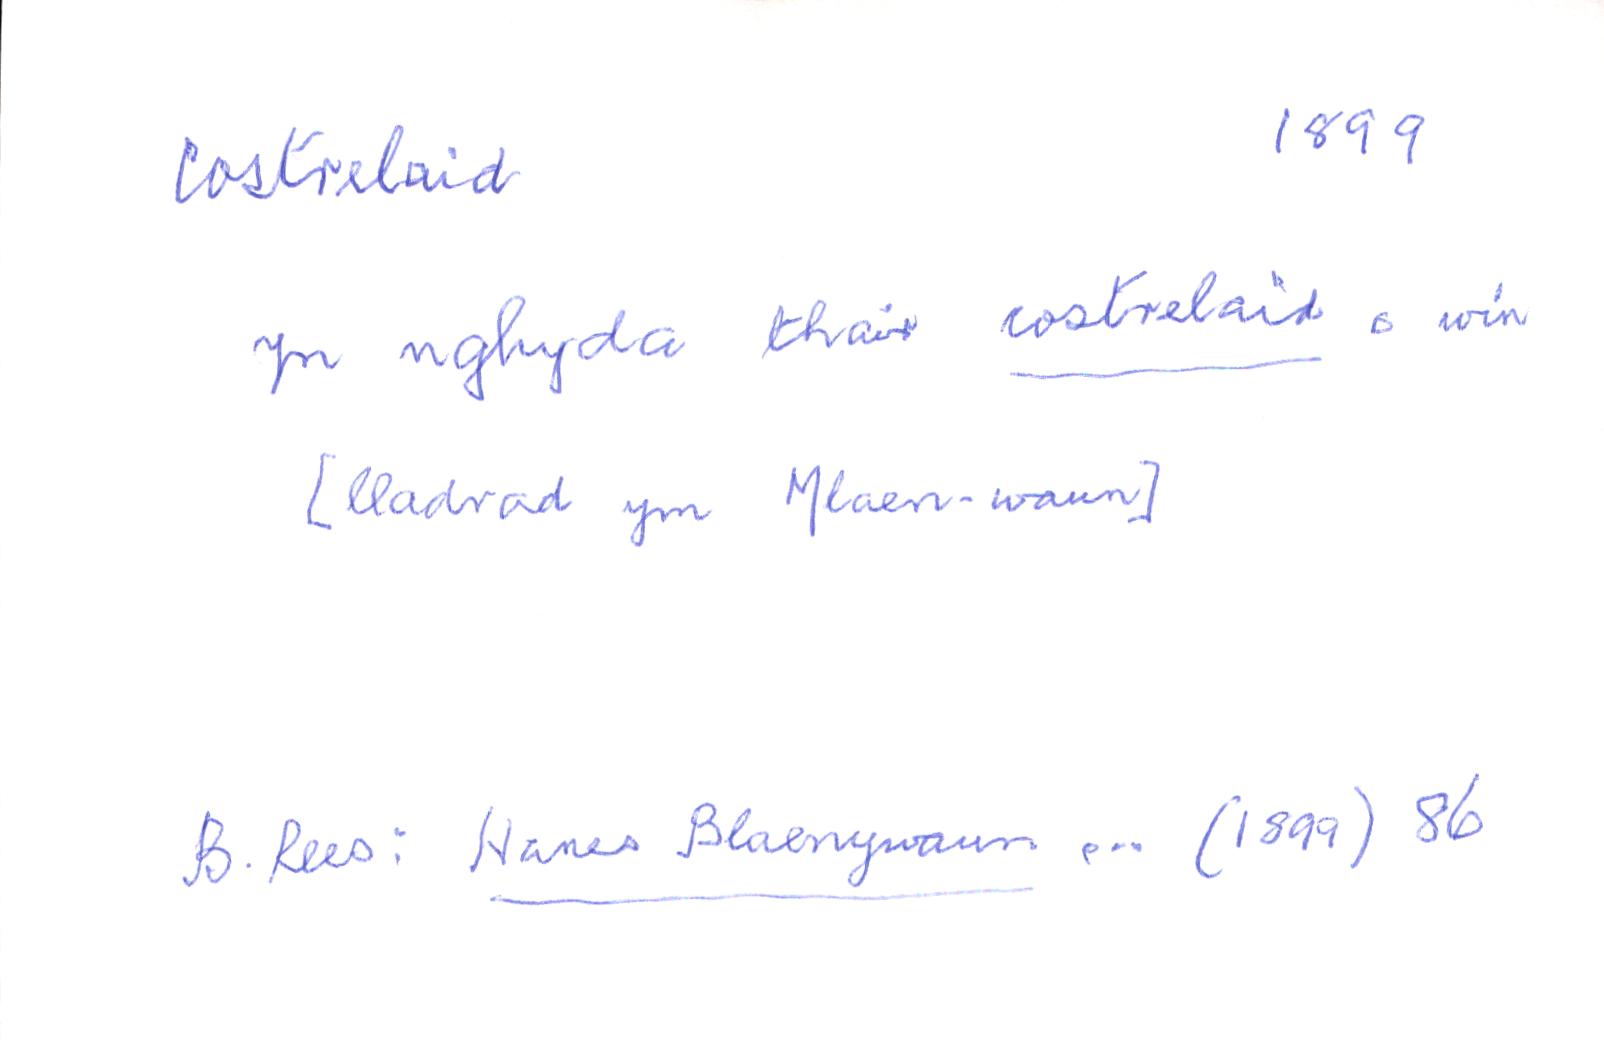 costrelaid 1899
yn nghyda thair costrelaid o win
[lladrad ym Mlaen-waun]
B. Rees: Hanes Blaenywaun ... (1899) 86